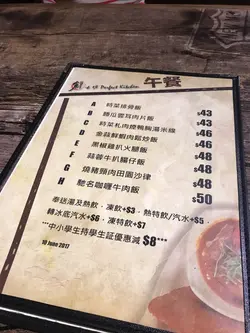 鮮 & 靚 Perfect Kitchen 午餐
A 時菜排骨飯 $43
B 翠瓜雲耳肉片飯 $43
C 時菜札肉燈鴨胸湯米線 $46
D 金蒜鮮蝦肉鬆炒飯 $46
E 黑椒雞扒火腿飯 $48
F 蒜蓉牛扒腸仔飯 $48
G 燒豬頸肉田園沙律 $48
H 馳名咖喱牛肉飯 $50
奉送湯及熱飲，凍飲+$3，熱特飲/汽水+$5，
轉冰底汽水+$6，凍特飲+$7
***中小學生持學生証優惠減 $8***
10 June 2017